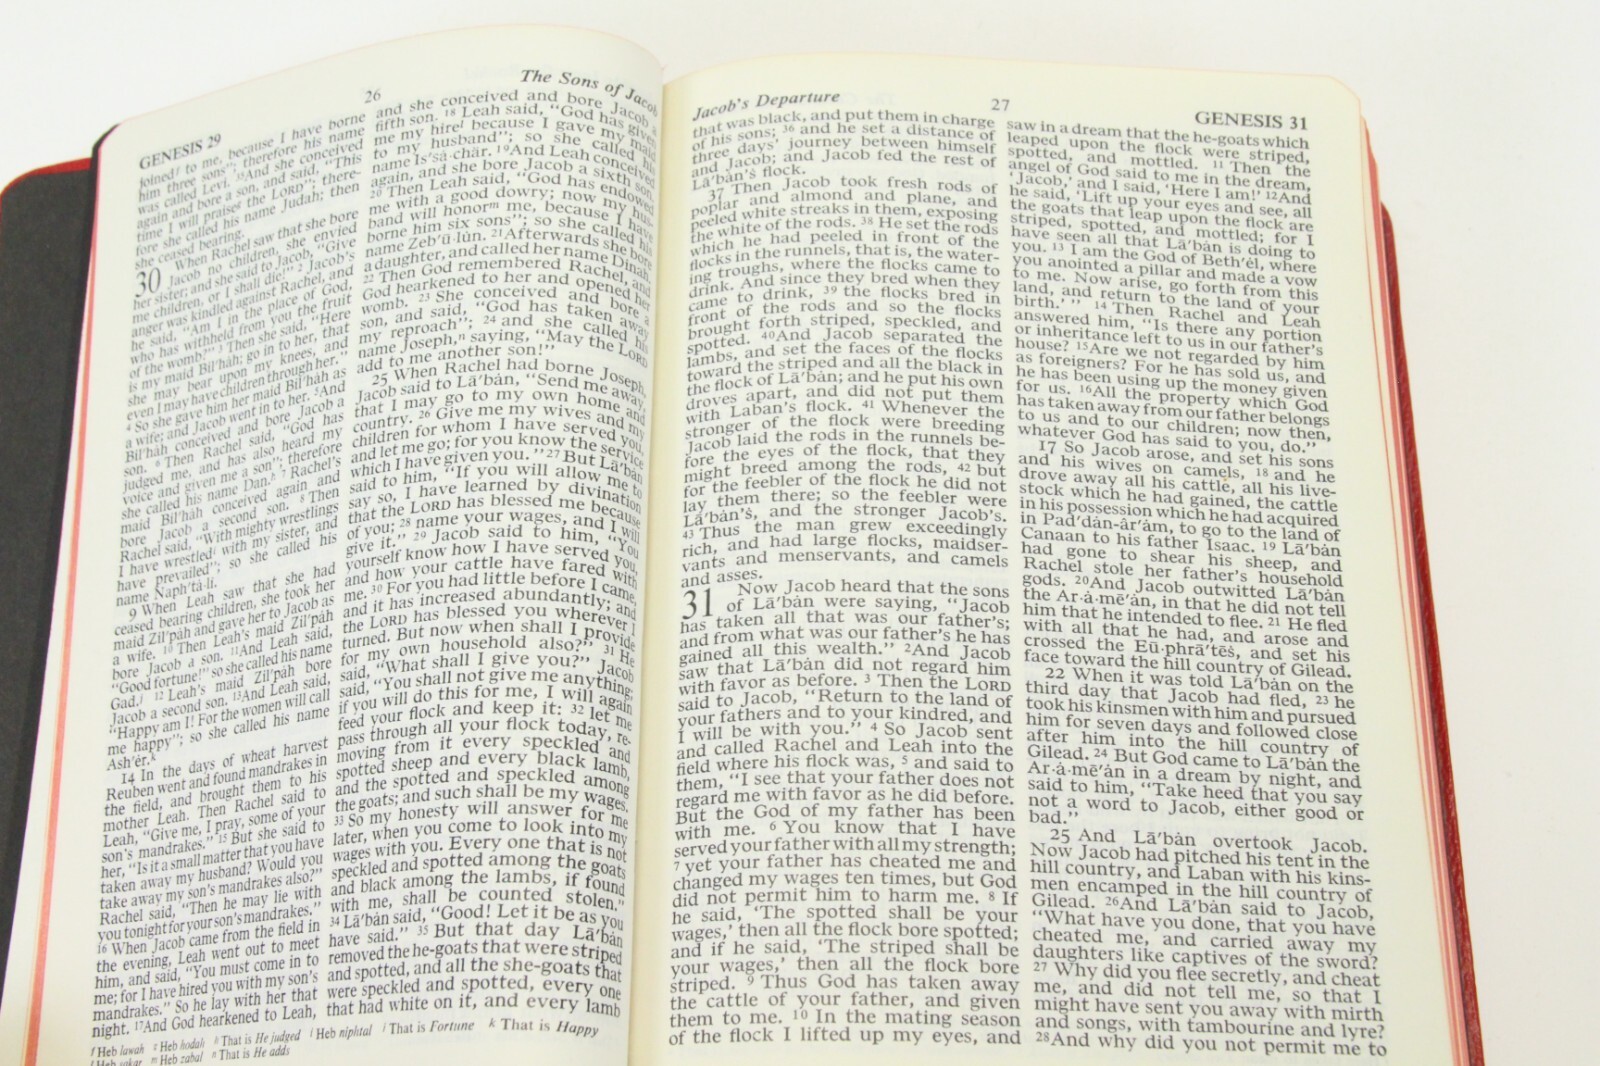 GENESIS 29
26
The Sons of Jacob
joinedᶠ to me, because I have borne
him three sons"; therefore his name
was called Levi. ³⁵And she conceived
again and bore a son, and said, "This
time I will praiseᵍ the LORD"; there-
fore she called his name Judah; then
she ceased bearing.
30 When Rachel saw that she bore
Jacob no children, she envied
her sister; and she said to Jacob, "Give
me children, or I shall die!" ² Jacob's
anger was kindled against Rachel, and
he said, "Am I in the place of God,
who has withheld from you the fruit
of the womb?" ³ Then she said, "Here
is my maid Bil'hàh; go in to her, that
she may bear upon my knees, and
even I may have children through her."
⁴ So she gave him her maid Bil'hàh as
a wife; and Jacob went in to her. ⁵And
Bil'hàh conceived and bore Jacob a
son. ⁶ Then Rachel said, "God has
judged me, and has also heard my
voice and given me a son"; therefore
she called his name Dan.ʰ ⁷ Rachel's
maid Bil'hàh conceived again and
bore Jacob a second son. ⁸ Then
Rachel said, "With mighty wrestlings
I have wrestledⁱ with my sister, and
have prevailed"; so she called his
name Naph'tà·lī.
9 When Leah saw that she had
ceased bearing children, she took her
maid Zil'pàh and gave her to Jacob as
a wife. ¹⁰ Then Leah's maid Zil'pàh
bore Jacob a son. ¹¹And Leah said,
"Good fortune!" so she called his name
Gad.ʲ ¹² Leah's maid Zil'pàh bore
Jacob a second son. ¹³And Leah said,
"Happy am I! For the women will call
me happy"; so she called his name
Ash'ér.ᵏ
14 In the days of wheat harvest
Reuben went and found mandrakes in
the field, and brought them to his
mother Leah. Then Rachel said to
Leah, "Give me, I pray, some of your
son's mandrakes." ¹⁵ But she said to
her, "Is it a small matter that you have
taken away my husband? Would you
take away my son's mandrakes also?"
Rachel said, "Then he may lie with
you tonight for your son's mandrakes."
¹⁶ When Jacob came from the field in
the evening, Leah went out to meet
him, and said, "You must come in to
me; for I have hired you with my son's
mandrakes." So he lay with her that
night. ¹⁷And God hearkened to Leah,
and she conceived and bore Jacob a
fifth son. ¹⁸ Leah said, "God has given
me my hireˡ because I gave my maid
to my husband"; so she called his
name Is'sà·chàr. ¹⁹And Leah conceived
again, and she bore Jacob a sixth son.
²⁰ Then Leah said, "God has endowed
me with a good dowry; now my hus-
band will honorᵐ me, because I have
borne him six sons"; so she called his
name Zeb'ū·lùn. ²¹Afterwards she bore
a daughter, and called her name Dinah.
²² Then God remembered Rachel, and
God hearkened to her and opened her
womb. ²³ She conceived and bore a
son, and said, "God has taken away
my reproach"; ²⁴ and she called his
name Joseph,ⁿ saying, "May the LORD
add to me another son!"
25 When Rachel had borne Joseph,
Jacob said to Lā'bàn, "Send me away,
that I may go to my own home and
country. ²⁶ Give me my wives and my
children for whom I have served you,
and let me go; for you know the service
which I have given you." ²⁷ But Lā'bàn
said to him, "If you will allow me to
say so, I have learned by divination
that the LORD has blessed me because
of you; ²⁸ name your wages, and I will
give it." ²⁹ Jacob said to him, "You
yourself know how I have served you,
and how your cattle have fared with
me. ³⁰ For you had little before I came,
and it has increased abundantly; and
the LORD has blessed you wherever I
turned. But now when shall I provide
for my own household also?" ³¹ He
said, "What shall I give you?" Jacob
said, "You shall not give me anything;
if you will do this for me, I will again
feed your flock and keep it: ³² let me
pass through all your flock today, re-
moving from it every speckled and
spotted sheep and every black lamb,
and the spotted and speckled among
the goats; and such shall be my wages.
³³ So my honesty will answer for me
later, when you come to look into my
wages with you. Every one that is not
speckled and spotted among the goats
and black among the lambs, if found
with me, shall be counted stolen."
³⁴ Lā'bàn said, "Good! Let it be as you
have said." ³⁵ But that day Lā'bàn
removed the he-goats that were striped
and spotted, and all the she-goats that
were speckled and spotted, every one
that had white on it, and every lamb
ᶠ Heb lawah ᵍ Heb hodah ʰ That is He judged ⁱ Heb niphtal ʲ That is Fortune ᵏ That is Happy
ˡ Heb sakar ᵐ Heb zabal ⁿ That is He adds
Jacob's Departure
27
GENESIS 31
that was black, and put them in charge
of his sons; ³⁶ and he set a distance of
three days' journey between himself
and Jacob; and Jacob fed the rest of
Lā'bàn's flock.
37 Then Jacob took fresh rods of
poplar and almond and plane, and
peeled white streaks in them, exposing
the white of the rods. ³⁸ He set the rods
which he had peeled in front of the
flocks in the runnels, that is, the water-
ing troughs, where the flocks came to
drink. And since they bred when they
came to drink, ³⁹ the flocks bred in
front of the rods and so the flocks
brought forth striped, speckled, and
spotted. ⁴⁰And Jacob separated the
lambs, and set the faces of the flocks
toward the striped and all the black in
the flock of Lā'bàn; and he put his own
droves apart, and did not put them
with Laban's flock. ⁴¹ Whenever the
stronger of the flock were breeding
Jacob laid the rods in the runnels be-
fore the eyes of the flock, that they
might breed among the rods, ⁴² but
for the feebler of the flock he did not
lay them there; so the feebler were
Lā'bàn's, and the stronger Jacob's.
⁴³ Thus the man grew exceedingly
rich, and had large flocks, maidser-
vants and menservants, and camels
and asses.
31 Now Jacob heard that the sons
of Lā'bàn were saying, "Jacob
has taken all that was our father's;
and from what was our father's he has
gained all this wealth." ²And Jacob
saw that Lā'bàn did not regard him
with favor as before. ³ Then the LORD
said to Jacob, "Return to the land of
your fathers and to your kindred, and
I will be with you." ⁴ So Jacob sent
and called Rachel and Leah into the
field where his flock was, ⁵ and said to
them, "I see that your father does not
regard me with favor as he did before.
But the God of my father has been
with me. ⁶ You know that I have
served your father with all my strength;
⁷ yet your father has cheated me and
changed my wages ten times, but God
did not permit him to harm me. ⁸ If
he said, 'The spotted shall be your
wages,' then all the flock bore spotted;
and if he said, 'The striped shall be
your wages,' then all the flock bore
striped. ⁹ Thus God has taken away
the cattle of your father, and given
them to me. ¹⁰ In the mating season
of the flock I lifted up my eyes, and
saw in a dream that the he-goats which
leaped upon the flock were striped,
spotted, and mottled. ¹¹ Then the
angel of God said to me in the dream,
'Jacob,' and I said, 'Here I am!' ¹²And
he said, 'Lift up your eyes and see, all
the goats that leap upon the flock are
striped, spotted, and mottled; for I
have seen all that Lā'bàn is doing to
you. ¹³ I am the God of Beth'él, where
you anointed a pillar and made a vow
to me. Now arise, go forth from this
land, and return to the land of your
birth.' " ¹⁴ Then Rachel and Leah
answered him, "Is there any portion
or inheritance left to us in our father's
house? ¹⁵Are we not regarded by him
as foreigners? For he has sold us, and
he has been using up the money given
for us. ¹⁶All the property which God
has taken away from our father belongs
to us and to our children; now then,
whatever God has said to you, do."
17 So Jacob arose, and set his sons
and his wives on camels, ¹⁸ and he
drove away all his cattle, all his live-
stock which he had gained, the cattle
in his possession which he had acquired
in Pad'dàn-âr'àm, to go to the land of
Canaan to his father Isaac. ¹⁹ Lā'bàn
had gone to shear his sheep, and
Rachel stole her father's household
gods. ²⁰And Jacob outwitted Lā'bàn
the Ar·à·mē'àn, in that he did not tell
him that he intended to flee. ²¹ He fled
with all that he had, and arose and
crossed the Eū·phrā'tēs, and set his
face toward the hill country of Gilead.
22 When it was told Lā'bàn on the
third day that Jacob had fled, ²³ he
took his kinsmen with him and pursued
him for seven days and followed close
after him into the hill country of
Gilead. ²⁴ But God came to Lā'bàn the
Ar·à·mē'àn in a dream by night, and
said to him, "Take heed that you say
not a word to Jacob, either good or
bad."
25 And Lā'bàn overtook Jacob.
Now Jacob had pitched his tent in the
hill country, and Laban with his kins-
men encamped in the hill country of
Gilead. ²⁶And Lā'bàn said to Jacob,
"What have you done, that you have
cheated me, and carried away my
daughters like captives of the sword?
²⁷ Why did you flee secretly, and cheat
me, and did not tell me, so that I
might have sent you away with mirth
and songs, with tambourine and lyre?
²⁸And why did you not permit me to